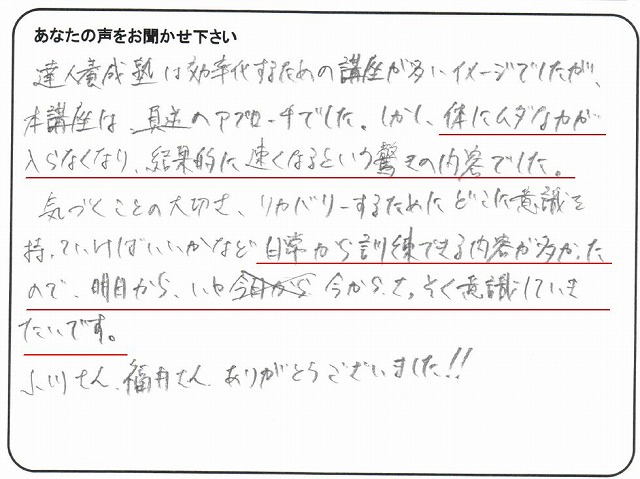 あなたの声をお聞かせ下さい
達人養成塾は効率化するための講座が多いイメージでしたが、
本講座は真逆のアプローチでした。しかし、体にムダな力が
入らなくなり、結果的に速くなるという驚きの内容でした。
気づくことの大切さ、リカバリーするためにどこに意識を
持っていけばいいかなど日常から訓練できる内容が多かった
ので、明日から、いや今日から今からさっそく意識していき
たいです。
小川さん、福井さん、ありがとうございました!!